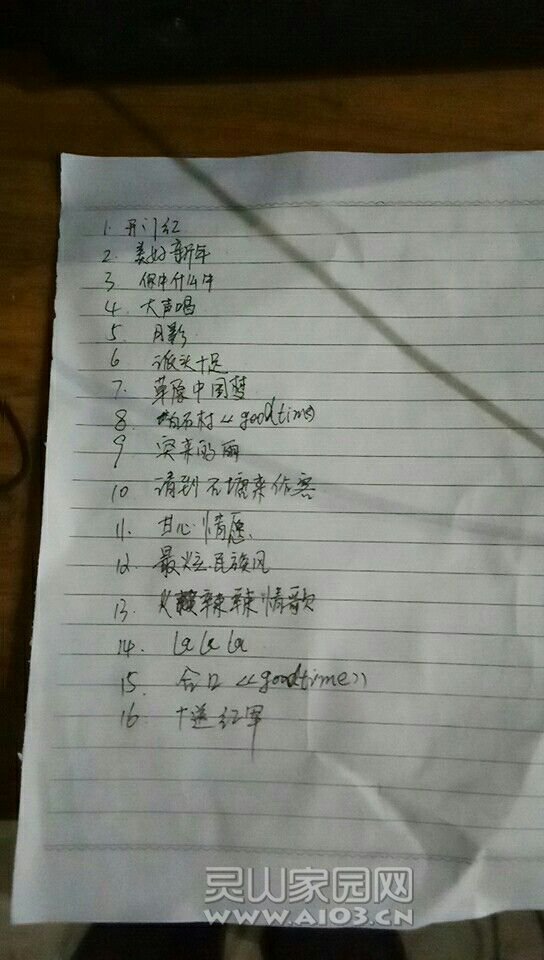 1. 开门红
2. 美好新年
3. 你牛什么牛
4. 大声唱
5. 月影
6. 派头十足
7. 草原中国梦
8. 石村 <<goodtime>
9 突来的雨
10 请到石塘来作客
11. 甘心情愿
12. 最炫民族风
13. 火辣辣辣情歌
14. la la la
15. 合口 <<goodtime>>
16 十送红军
灵山家园网
WWW.A103.CN